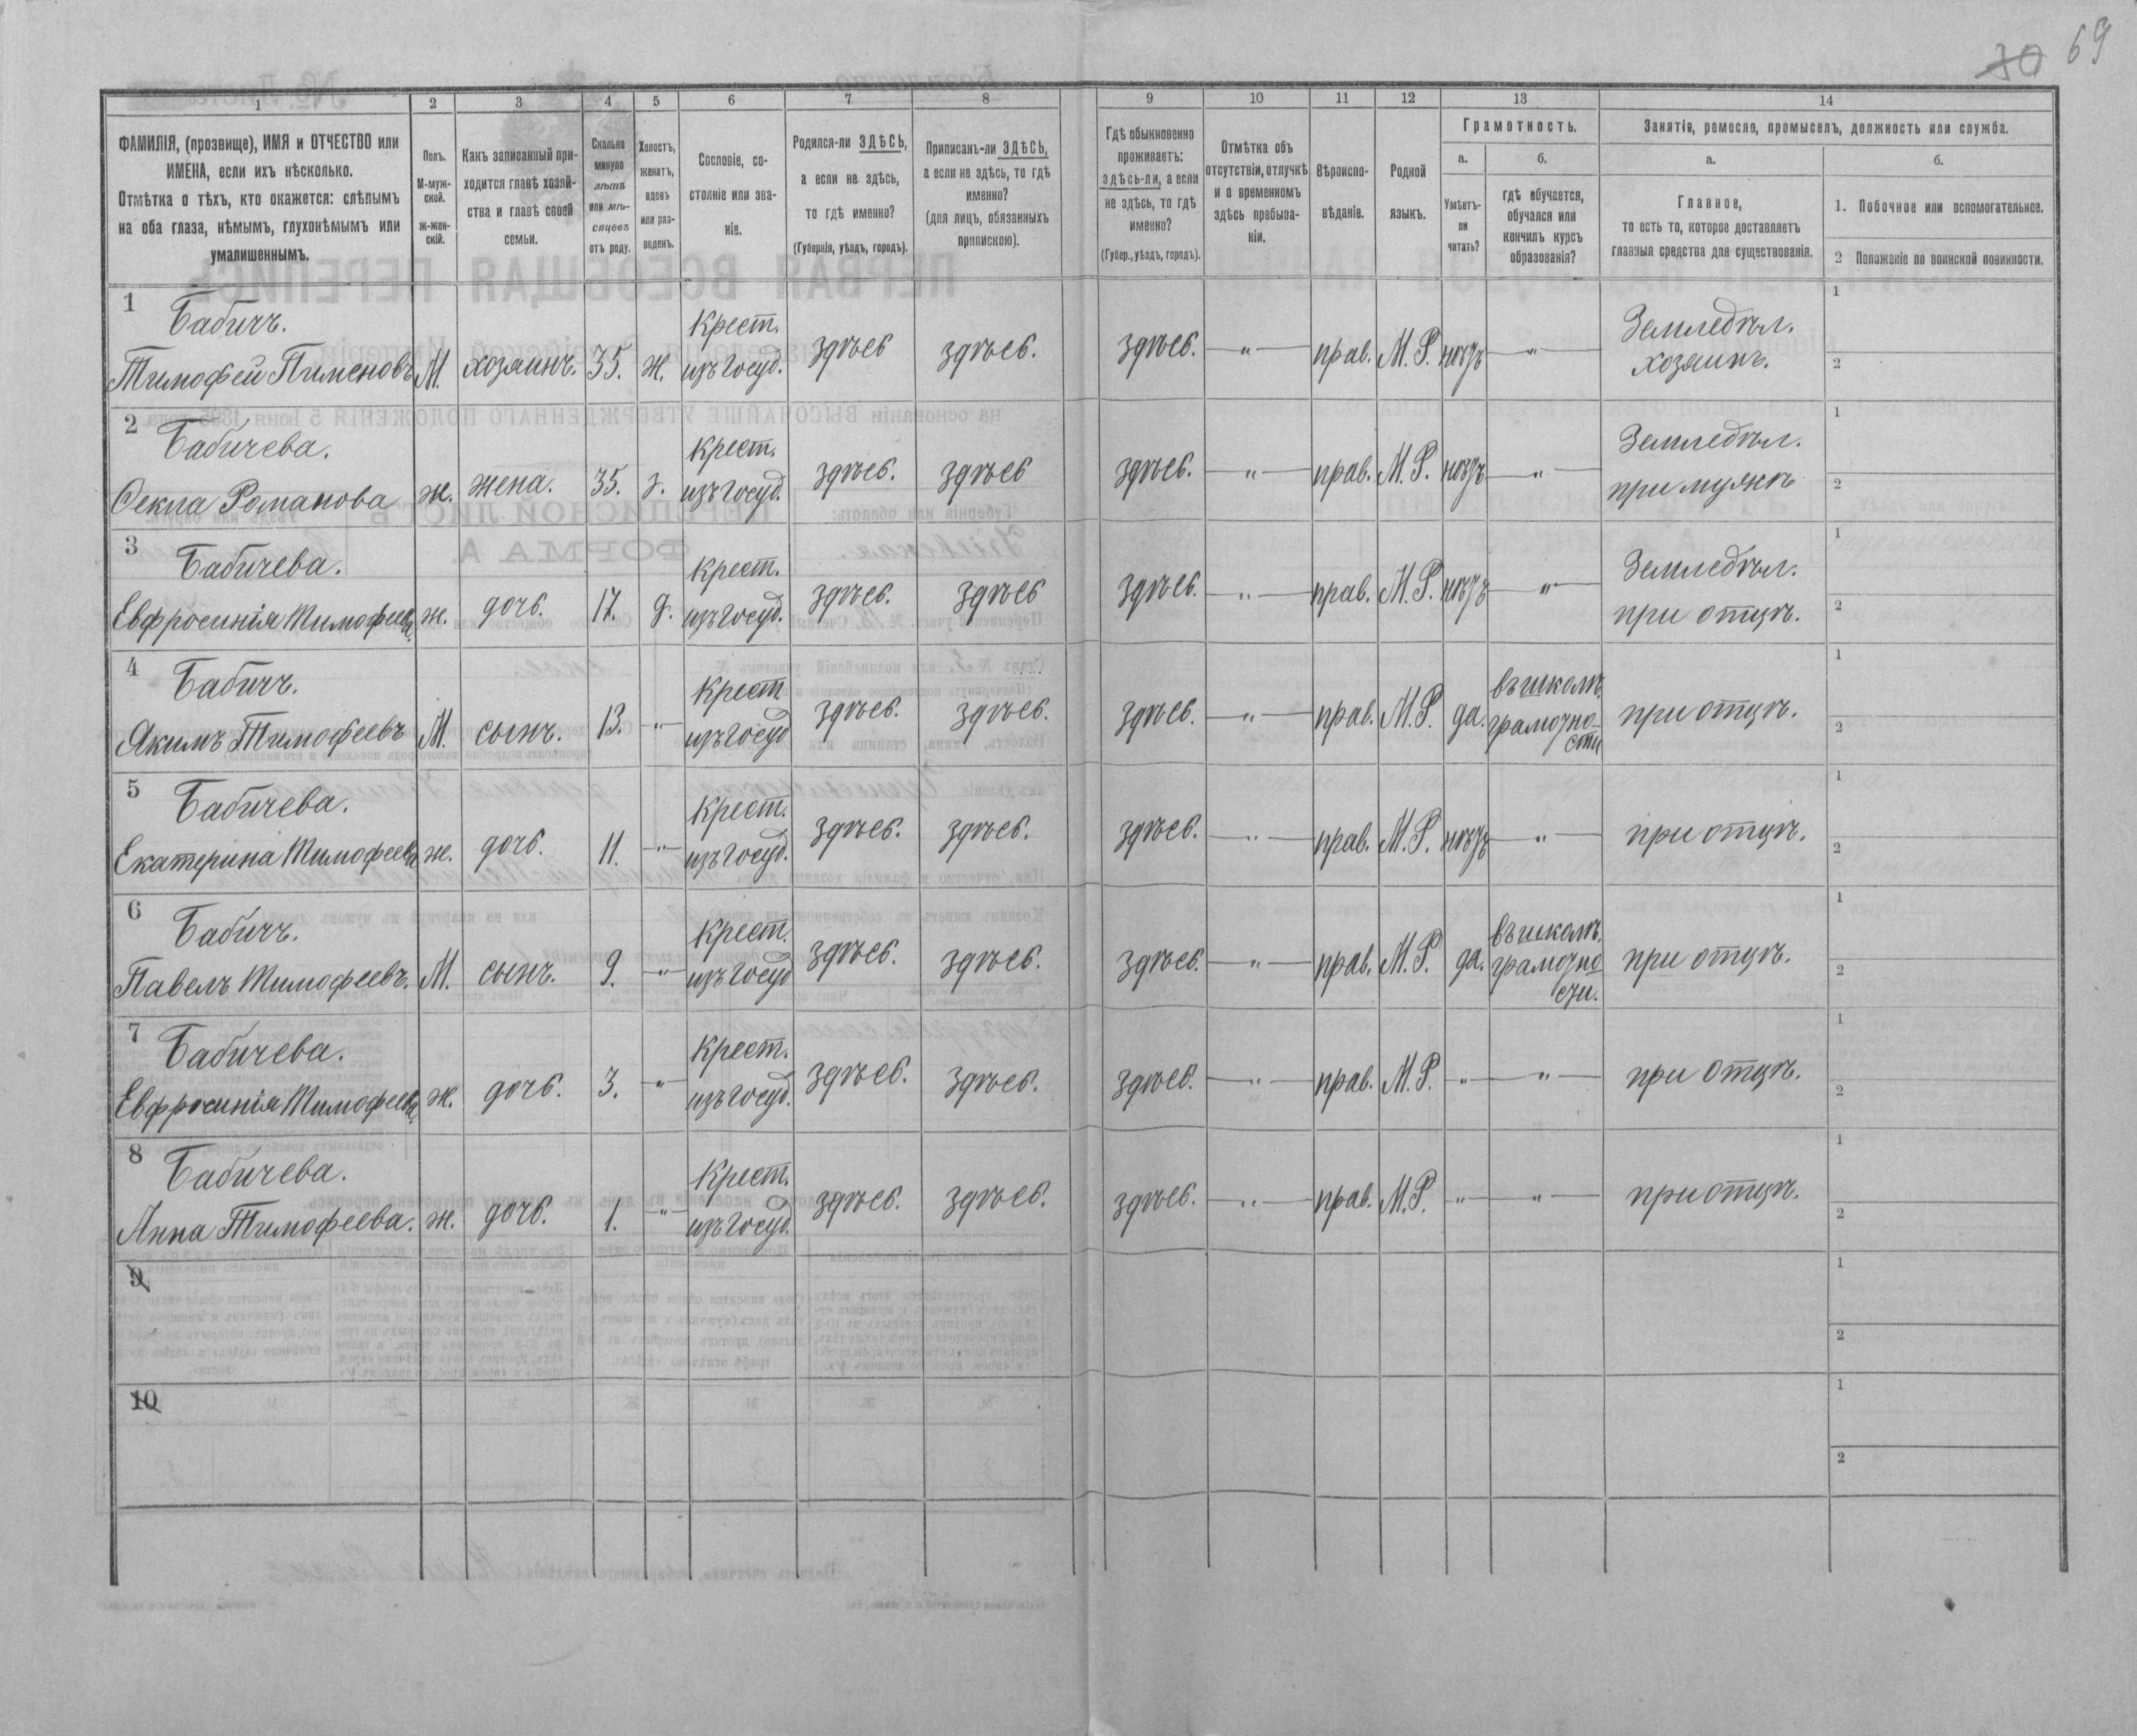 30 69
1 2 3 4 5 6 7 8 9 10 11 12 13 14
ФАМИЛІЯ, (прозвище), ИМЯ и ОТЧЕСТВО или
ИМЕНА, если ихъ нѣсколько.
Отмѣтка о тѣхъ, кто окажется: слѣпымъ
на оба глаза, нѣмымъ, глухонѣмымъ или
умалишеннымъ.
Полъ.
М-муж-
ской.
Ж-жен-
скій.
Какъ записанный при-
ходится главѣ хозяй-
ства и главѣ своей
семьи.
Сколько
минуло
лѣтъ
или мѣ-
сяцевъ
отъ роду.
Холостъ,
женатъ,
вдовъ
или раз-
веденъ.
Сословіе, со-
стояніе или зва-
ніе.
Родился-ли ЗДѢСЬ,
а если не здѣсь,
то гдѣ именно?
(Губернія, уѣздъ, городъ).
Приписанъ-ли ЗДѢСЬ,
а если не здѣсь, то гдѣ
именно?
(для лицъ, обязанныхъ
припискою).
Гдѣ обыкновенно
проживаетъ:
здѣсь-ли, а если
не здѣсь, то гдѣ
именно?
(Губер., уѣздъ, городъ).
Отмѣтка объ
отсутствіи, отлучкѣ
и о временномъ
здѣсь пребыва-
ніи.
Вѣроиспо-
вѣданіе.
Родной
языкъ.
Грамотность.
а.
Умѣетъ-
ли
читать?
б.
гдѣ обучается,
обучался или
кончилъ курсъ
образованія?
Занятіе, ремесло, промыселъ, должность или служба.
а.
Главное,
то есть то, которое доставляетъ
главныя средства для существованія.
б.
1. Побочное или вспомогательное.
2 Положеніе по воинской повинности.
1 Бабичъ. Крест. Земледѣл. 1
Тимофей Пименовъ М. хозяинъ. 35. ж. изъ Госуд. здѣсь здѣсь. здѣсь. — " — прав. М. Р. нѣтъ — " — хозяинъ. 2
2 Бабичева. Крест. Земледѣл. 1
Ѳекла Романова ж. жена. 35. з. изъ Госуд. здѣсь. здѣсь здѣсь. — " — прав. М. Р. нѣтъ — " — при мужѣ 2
3 Бабичева. Крест. Земледѣл. 1
Евфросинія Тимофеева. ж. дочь. 17. д. изъ Госуд. здѣсь. здѣсь здѣсь. — " — прав. М. Р. нѣтъ — " — при отцѣ. 2
4 Бабичъ. Крест въ школѣ 1
Якимъ Тимофеевъ М. сынъ. 13. " изъ Госуд здѣсь. здѣсь. здѣсь. — " — прав. М. Р. да. грамотно- при отцѣ. 2
сти
5 Бабичева. Крест. 1
Екатерина Тимофеева ж. дочь. 11. " изъ Госуд. здѣсь. здѣсь. здѣсь. — " — прав. М. Р. нѣтъ — " — при отцѣ. 2
6 Бабичъ. Крест. въ школѣ. 1
Павелъ Тимофеевъ. М. сынъ. 9. " изъ Госуд здѣсь. здѣсь. здѣсь. — " — прав. М. Р. да. грамотно при отцѣ. 2
сти.
7 Бабичева. Крест. 1
Евфросинія Тимофеева. ж. дочь. 3. " изъ Госуд. здѣсь. здѣсь. здѣсь. — " — прав. М. Р. " — " — при отцѣ. 2
8 Бабичева. Крест. 1
Анна Тимофеева. ж. дочь. 1. " изъ Госуд. здѣсь. здѣсь. здѣсь. — " — прав. М. Р. " — " — при отцѣ. 2
9 1
2
10 1
2